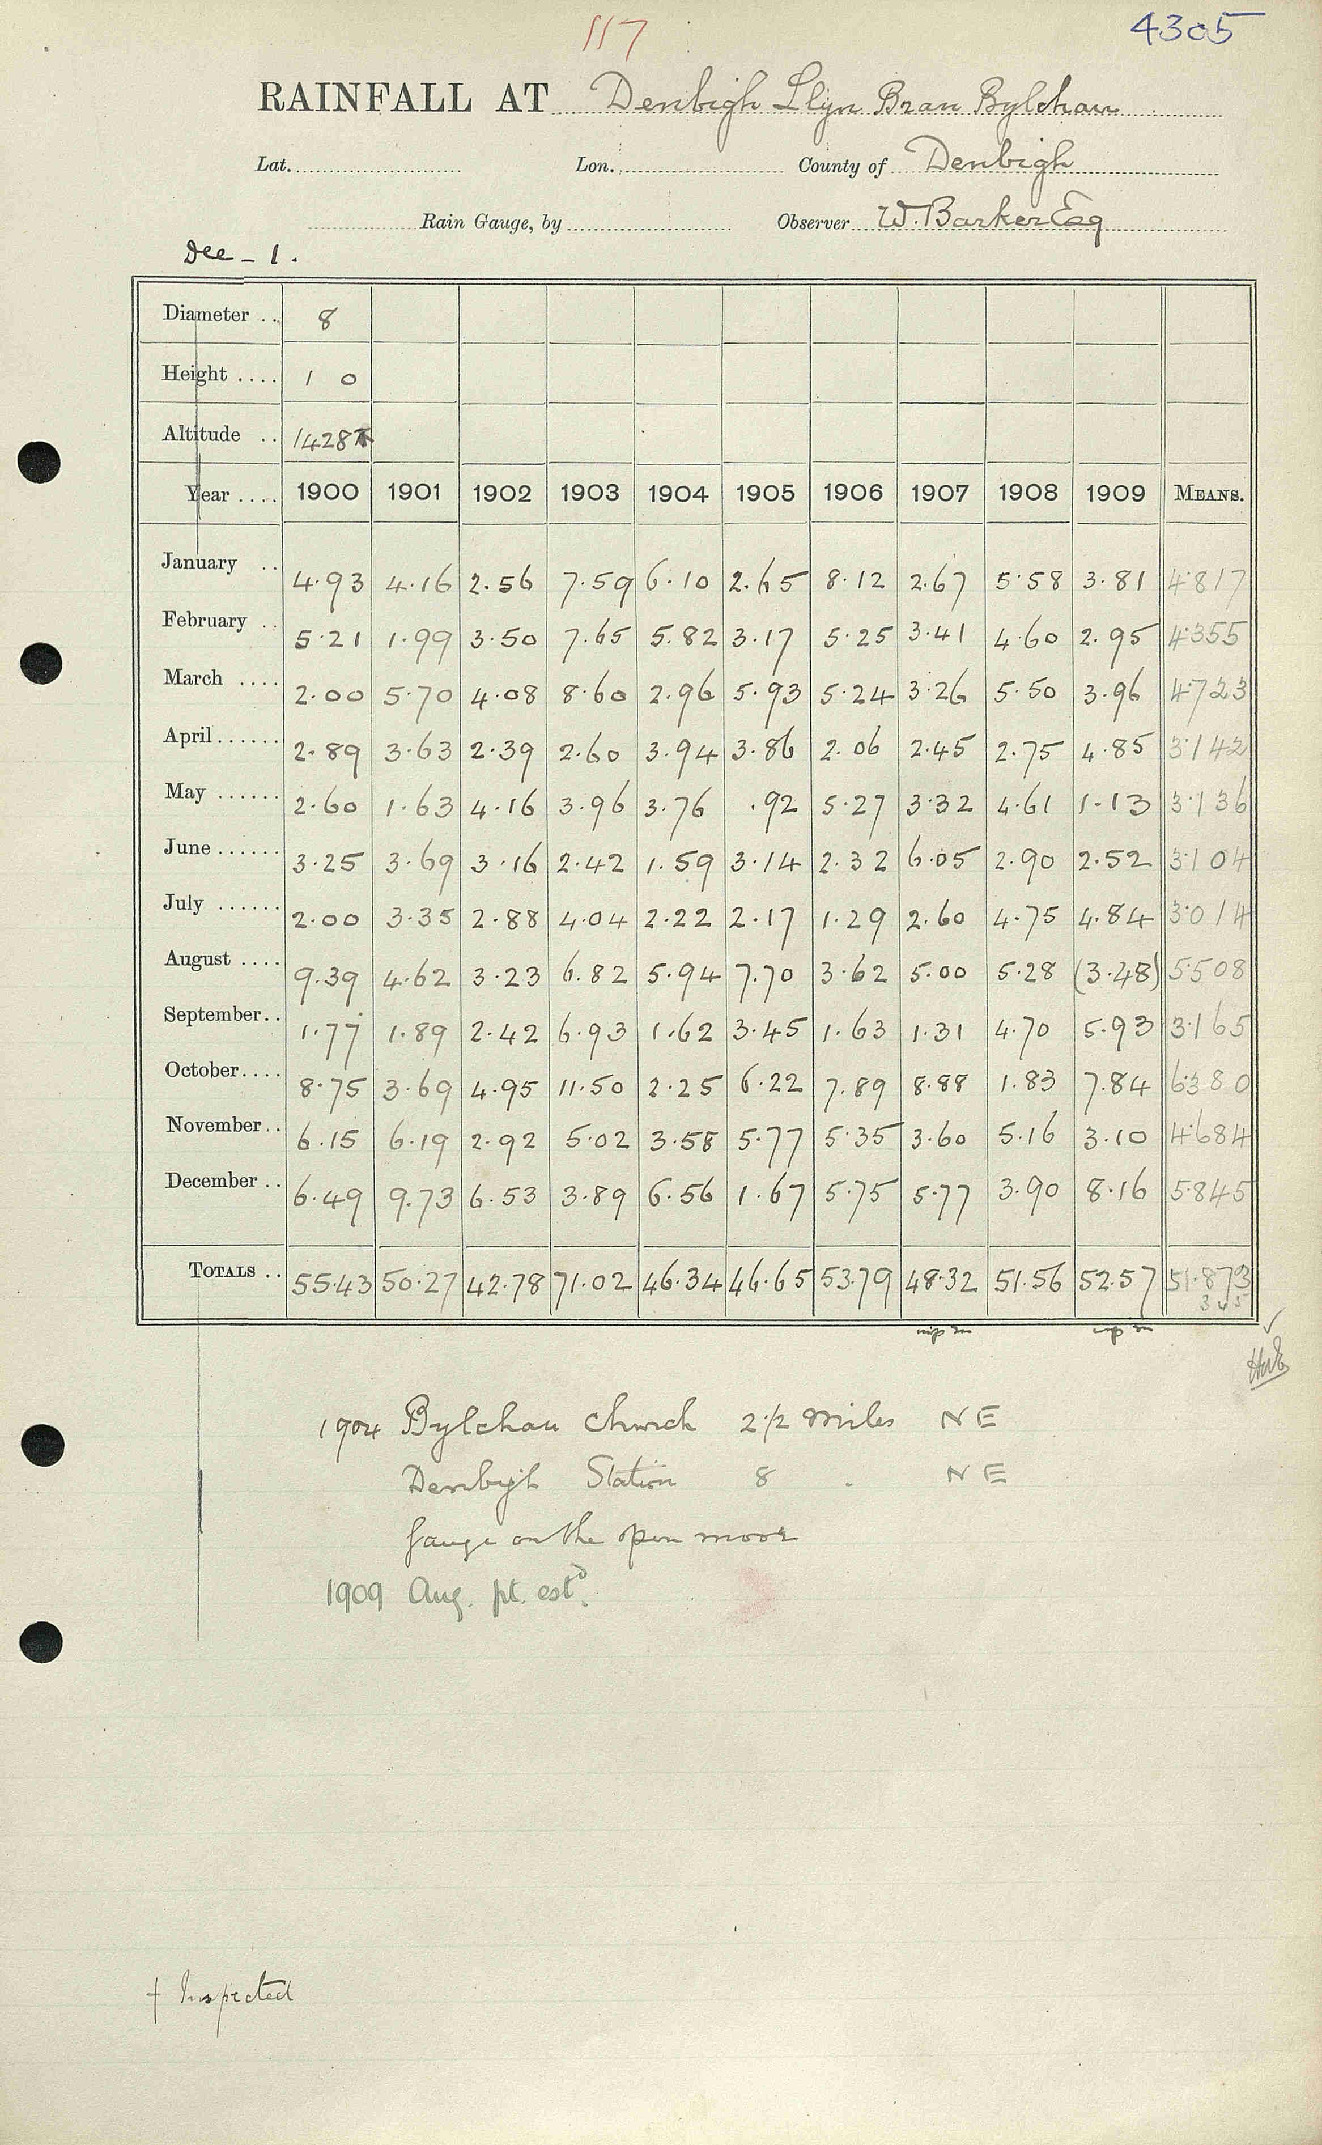 117
4305
RAINFALL AT Denbigh Llyn Bran Bylchau
Lat. Lon. County of Denbigh
Rain Gauge, by Observer W. Barker Esq
Dec - 1.
Diameter .. 8
Height .... 1 0
Altitude .. 1428 †
Year .... 1900 1901 1902 1903 1904 1905 1906 1907 1908 1909 MEANS.
January .. 4.93 4.16 2.56 7.59 6.10 2.65 8.12 2.67 5.58 3.81 4.817
February .. 5.21 1.99 3.50 7.65 5.82 3.17 5.25 3.41 4.60 2.95 4.355
March .... 2.00 5.70 4.08 8.60 2.96 5.93 5.24 3.26 5.50 3.96 4.723
April ...... 2.89 3.63 2.39 2.60 3.94 3.86 2.06 2.45 2.75 4.85 3.142
May ...... 2.60 1.63 4.16 3.96 3.76 .92 5.27 3.32 4.61 1.13 3.136
June ...... 3.25 3.69 3.16 2.42 1.59 3.14 2.32 6.05 2.90 2.52 3.104
July ...... 2.00 3.35 2.88 4.04 2.22 2.17 1.29 2.60 4.75 4.84 3.014
August .... 9.39 4.62 3.23 6.82 5.94 7.70 3.62 5.00 5.28 (3.48) 5.508
September.. 1.77 1.89 2.42 6.93 1.62 3.45 1.63 1.31 4.70 5.93 3.165
October.... 8.75 3.69 4.95 11.50 2.25 6.22 7.89 8.88 1.83 7.84 6.380
November.. 6.15 6.19 2.92 5.02 3.58 5.77 5.35 3.60 5.16 3.10 4.684
December .. 6.49 9.73 6.53 3.89 6.56 1.67 5.75 5.77 3.90 8.16 5.845
TOTALS .. 55.43 50.27 42.78 71.02 46.34 46.65 53.79 48.32 51.56 52.57 51.873
1904 Bylchau Church 2 1/2 miles NE
Denbigh Station 8 " NE
Gauge on the open moor
1909 Aug. pt. estd.
† Inspected